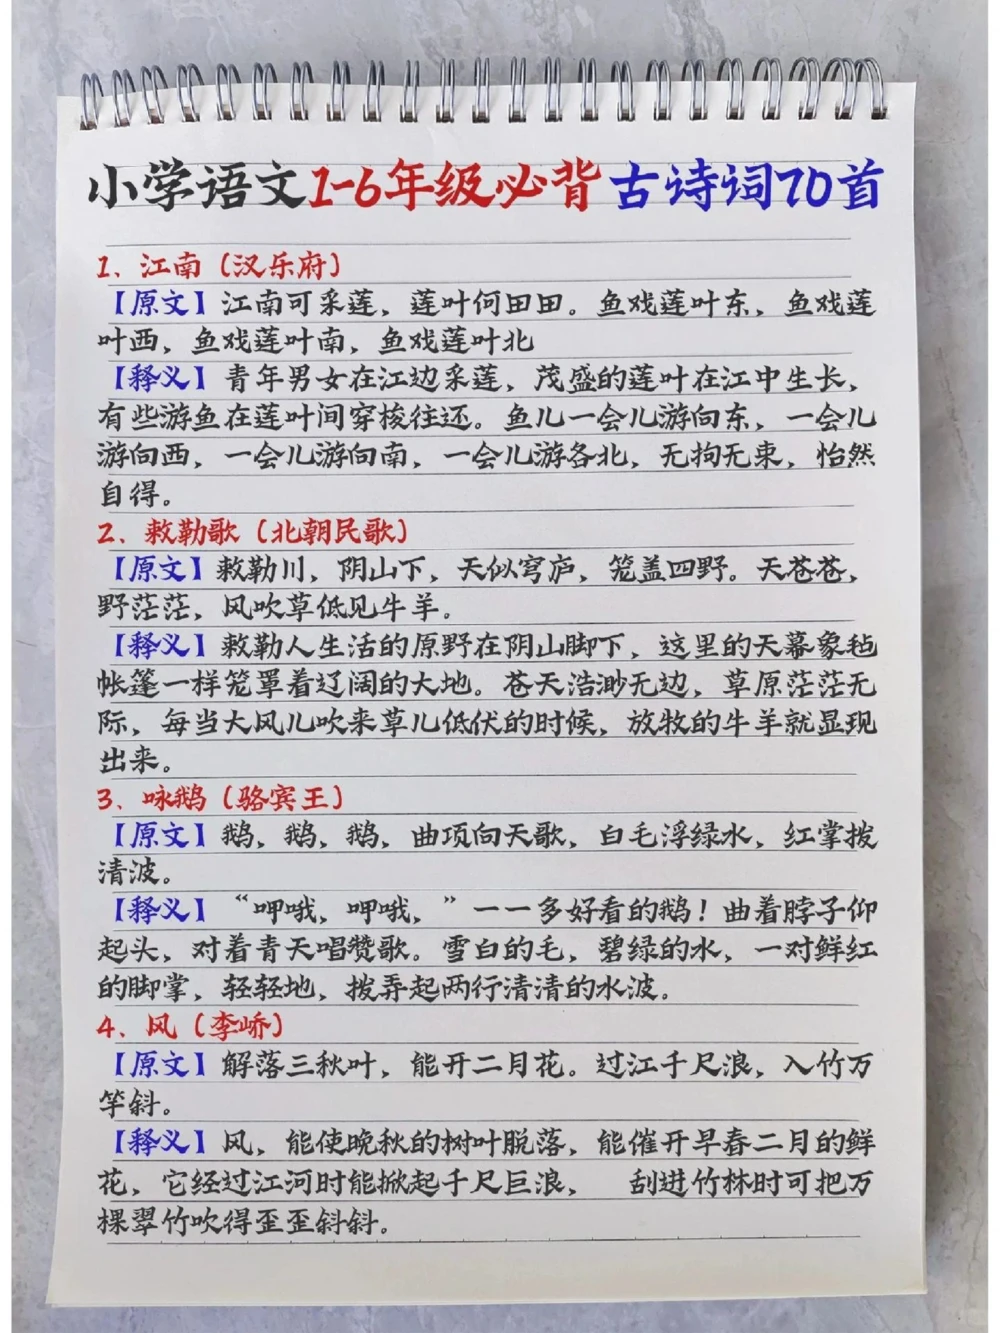 小学语文1-6年级必背古诗词70首
1、江南（汉乐府）
【原文】江南可采莲，莲叶何田田。鱼戏莲叶东，鱼戏莲
叶西，鱼戏莲叶南，鱼戏莲叶北
【释义】青年男女在江边采莲，茂盛的莲叶在江中生长，
有些游鱼在莲叶间穿梭往还。鱼儿一会儿游向东，一会儿
游向西，一会儿游向南，一会儿游各北，无拘无束，怡然
自得。
2、敕勒歌（北朝民歌）
【原文】敕勒川，阴山下，天似穹庐，笼盖四野。天苍苍，
野茫茫，风吹草低见牛羊。
【释义】敕勒人生活的原野在阴山脚下，这里的天幕象毡
帐篷一样笼罩着辽阔的大地。苍天浩渺无边，草原茫茫无
际，每当大风儿吹来草儿低伏的时候，放牧的牛羊就显现
出来。
3、咏鹅（骆宾王）
【原文】鹅，鹅，鹅，曲项向天歌，白毛浮绿水，红掌拨
清波。
【释义】“呷哦，呷哦，”一一多好看的鹅！曲着脖子仰
起头，对着青天唱赞歌。雪白的毛，碧绿的水，一对鲜红
的脚掌，轻轻地，拨弄起两行清清的水波。
4、风（李峤）
【原文】解落三秋叶，能开二月花。过江千尺浪，入竹万
竿斜。
【释义】风，能使晚秋的树叶脱落，能催开早春二月的鲜
花，它经过江河时能掀起千尺巨浪， 刮进竹林时可把万
棵翠竹吹得歪歪斜斜。